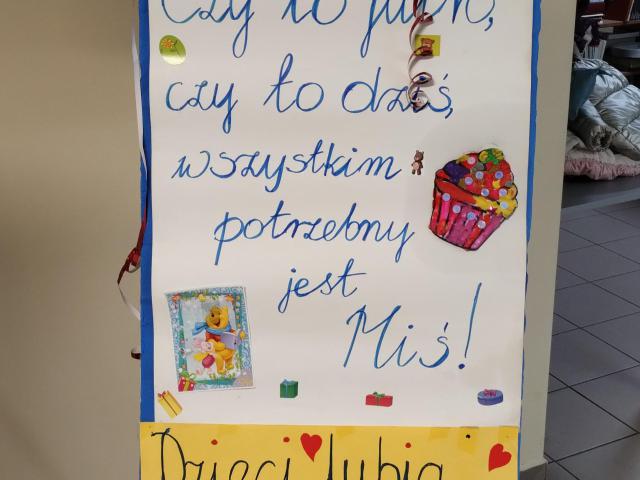 Czy to jutro,
czy to dziś,
wszystkim
potrzebny
jest
Miś!
Dzieci lubią